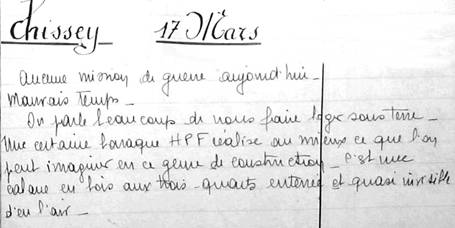 Chissey 17 Mars
Aucune mission de guerre aujourd'hui -
Mauvais Temps -
On parle beaucoup de nous faire loger sous terre -
Une certaine baraque HPF réalise au mieux ce que l'on
peut imaginer en ce genre de construction - C'est une
cabane en bois aux trois-quarts enterrée et quasi invisible
d'en l'air -